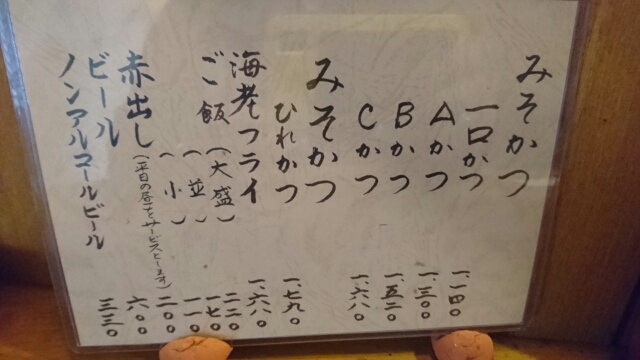 みそかつ
一口かつ 一、一四〇
Aかつ 一、三〇〇
Bかつ 一、五二〇
Cかつ 一、六八〇
みそかつ
ひれかつ 一、七九〇
海老フライ 一、六八〇
ご飯(大盛) 二二〇
(並) 一七〇
(小) 一一〇
赤出し(平日の昼はサービスとします) 二〇〇
ビール 六〇〇
ノンアルコールビール 三三〇